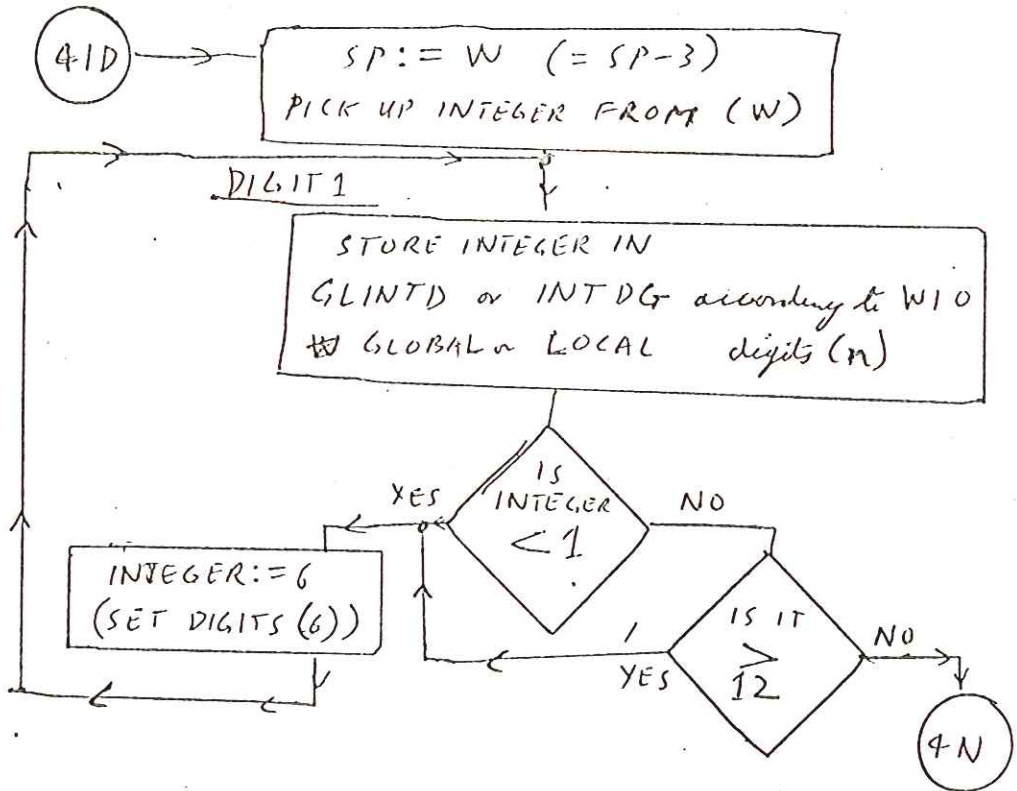 41D
SP := W (= SP-3)
PICK UP INTEGER FROM (W)
DIGIT1
STORE INTEGER IN
GLINTD or INTDG according to W10
GLOBAL or LOCAL digits (n)
IS
INTEGER
< 1
YES
NO
INTEGER := 6
(SET DIGITS (6))
IS IT
>
12
YES
NO
4N